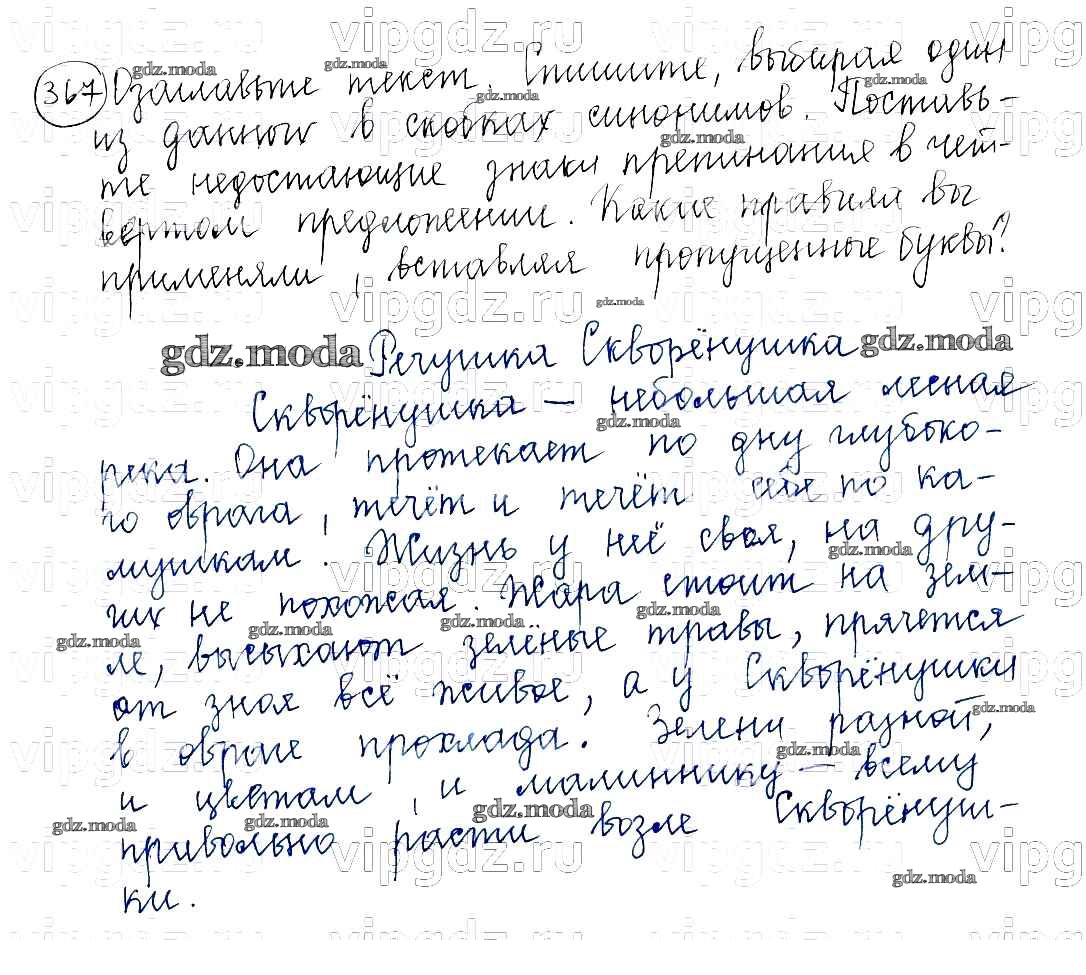 367 Озаглавьте текст. Спишите, выбирая один
из данных в скобках синонимов. Поставь-
те недостающие знаки препинания в чет-
вертом предложении. Какие правила вы
применяли, вставляя пропущенные буквы?
Речушка Скворёнушка
Скворёнушка – небольшая лесная
река. Она протекает по дну глубоко-
го оврага, течёт и течёт себе по ка-
мушкам. Жизнь у неё своя, на дру-
гих не похожая. Жара стоит на зем-
ле, высыхают зелёные травы, прячется
от зноя всё живое, а у Скворёнушки
в овраге прохлада. Зелени разной,
и цветам, и малиннику – всему
привольно расти возле Скворёнуш-
ки.